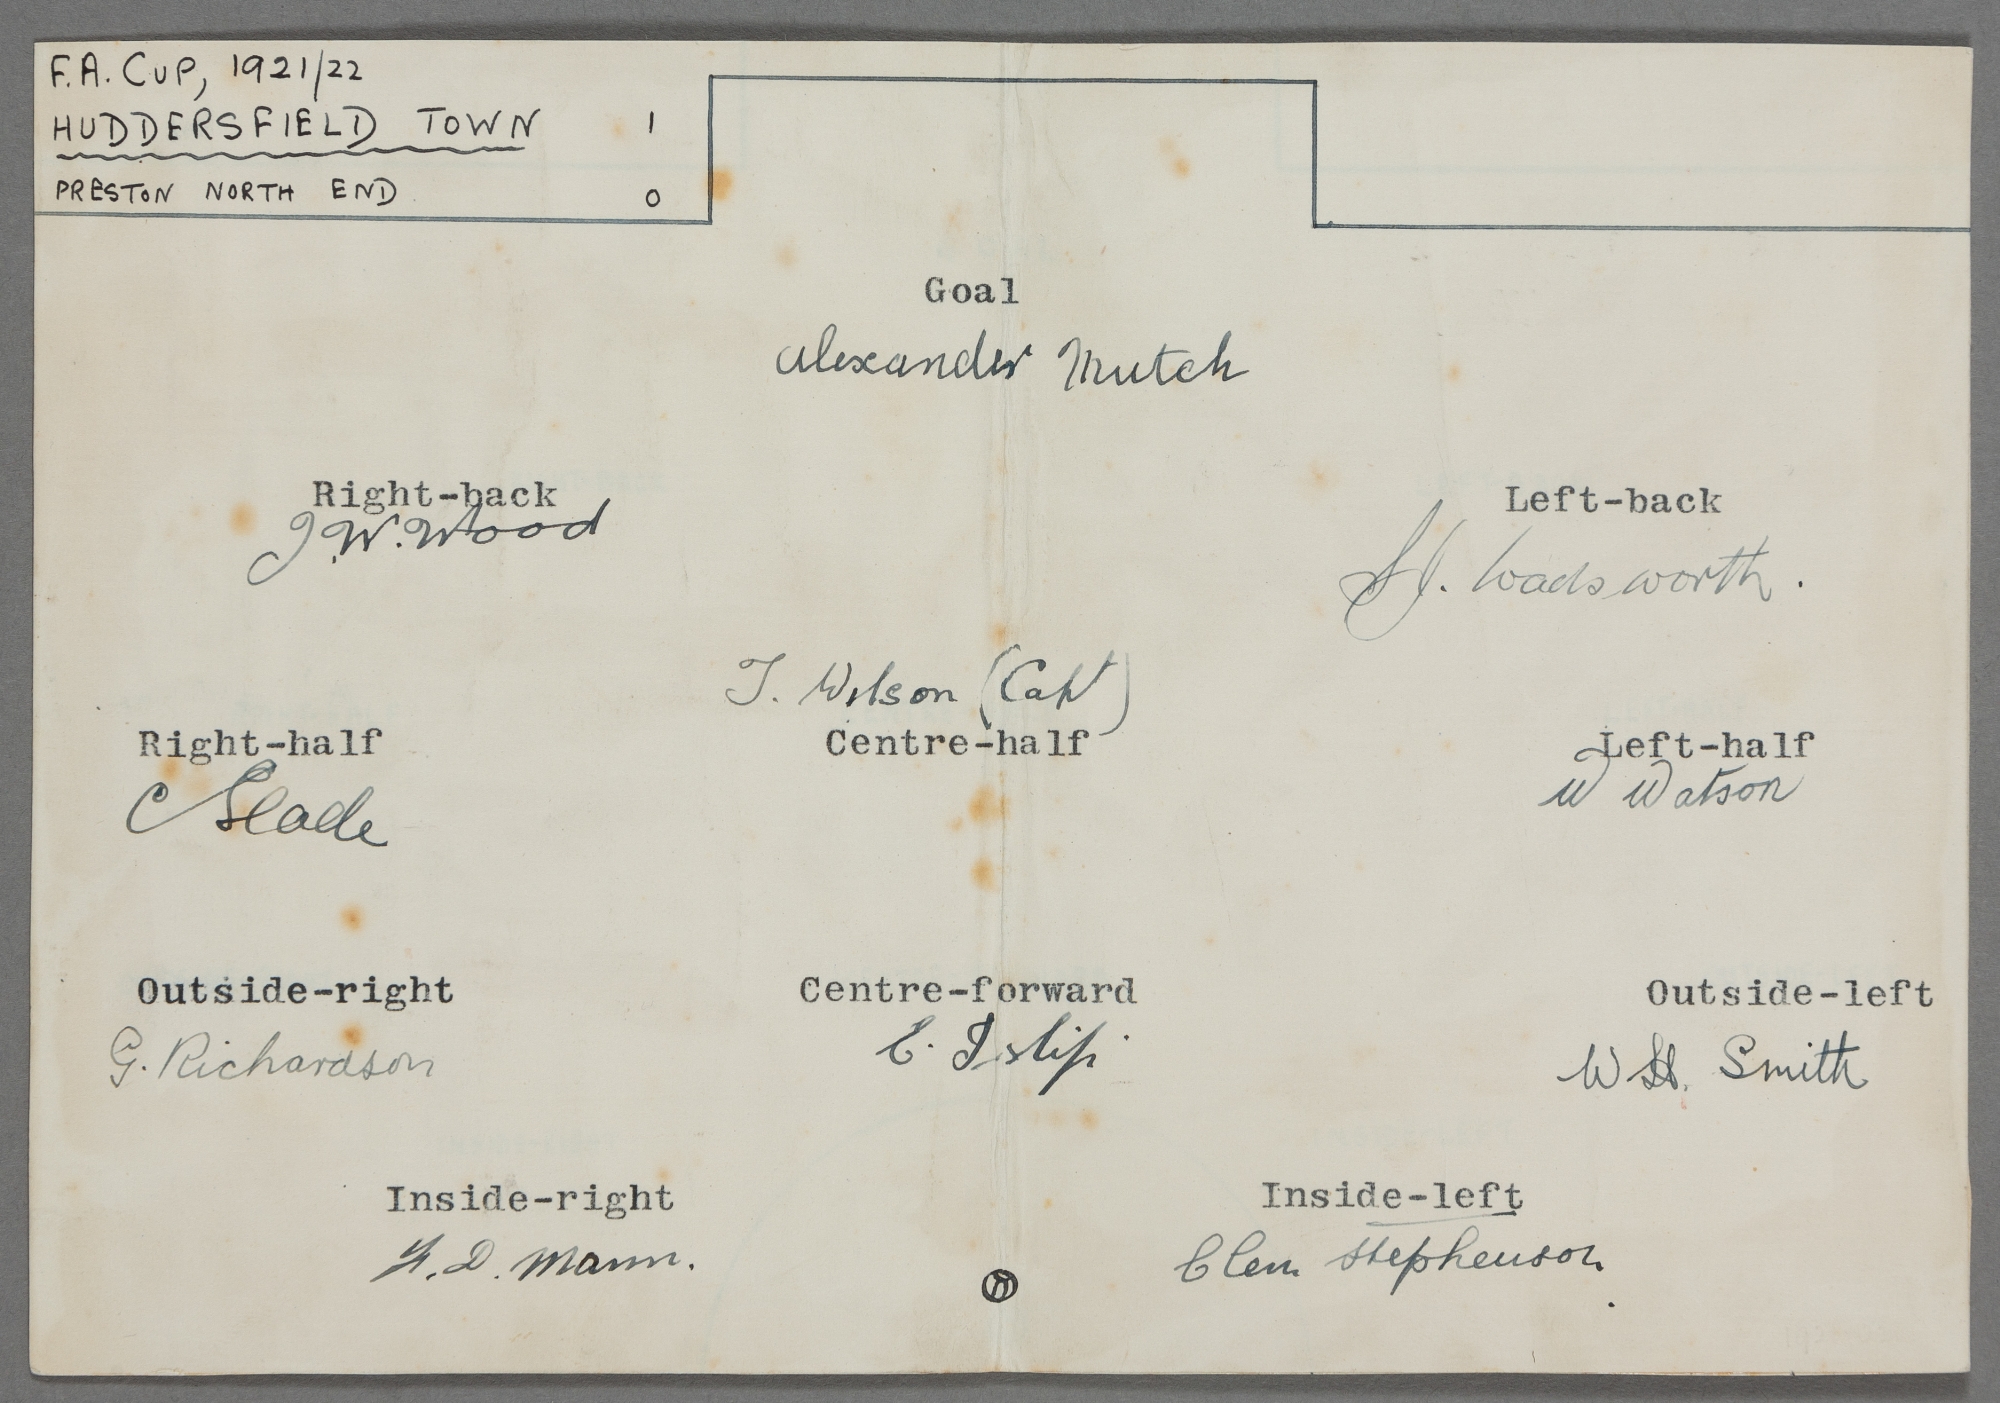 F.A. CUP, 1921/22
HUDDERSFIELD TOWN 1
PRESTON NORTH END 0
Goal
Alexander Mutch
Right-back Left-back
J.W. Wood S.J. Wadsworth.
T. Wilson (Capt)
Right-half Centre-half Left-half
C Slade W Watson
Outside-right Centre-forward Outside-left
G. Richardson E. Islip. W H. Smith
Inside-right Inside-left
F. D. Mann. Clem Stephenson.